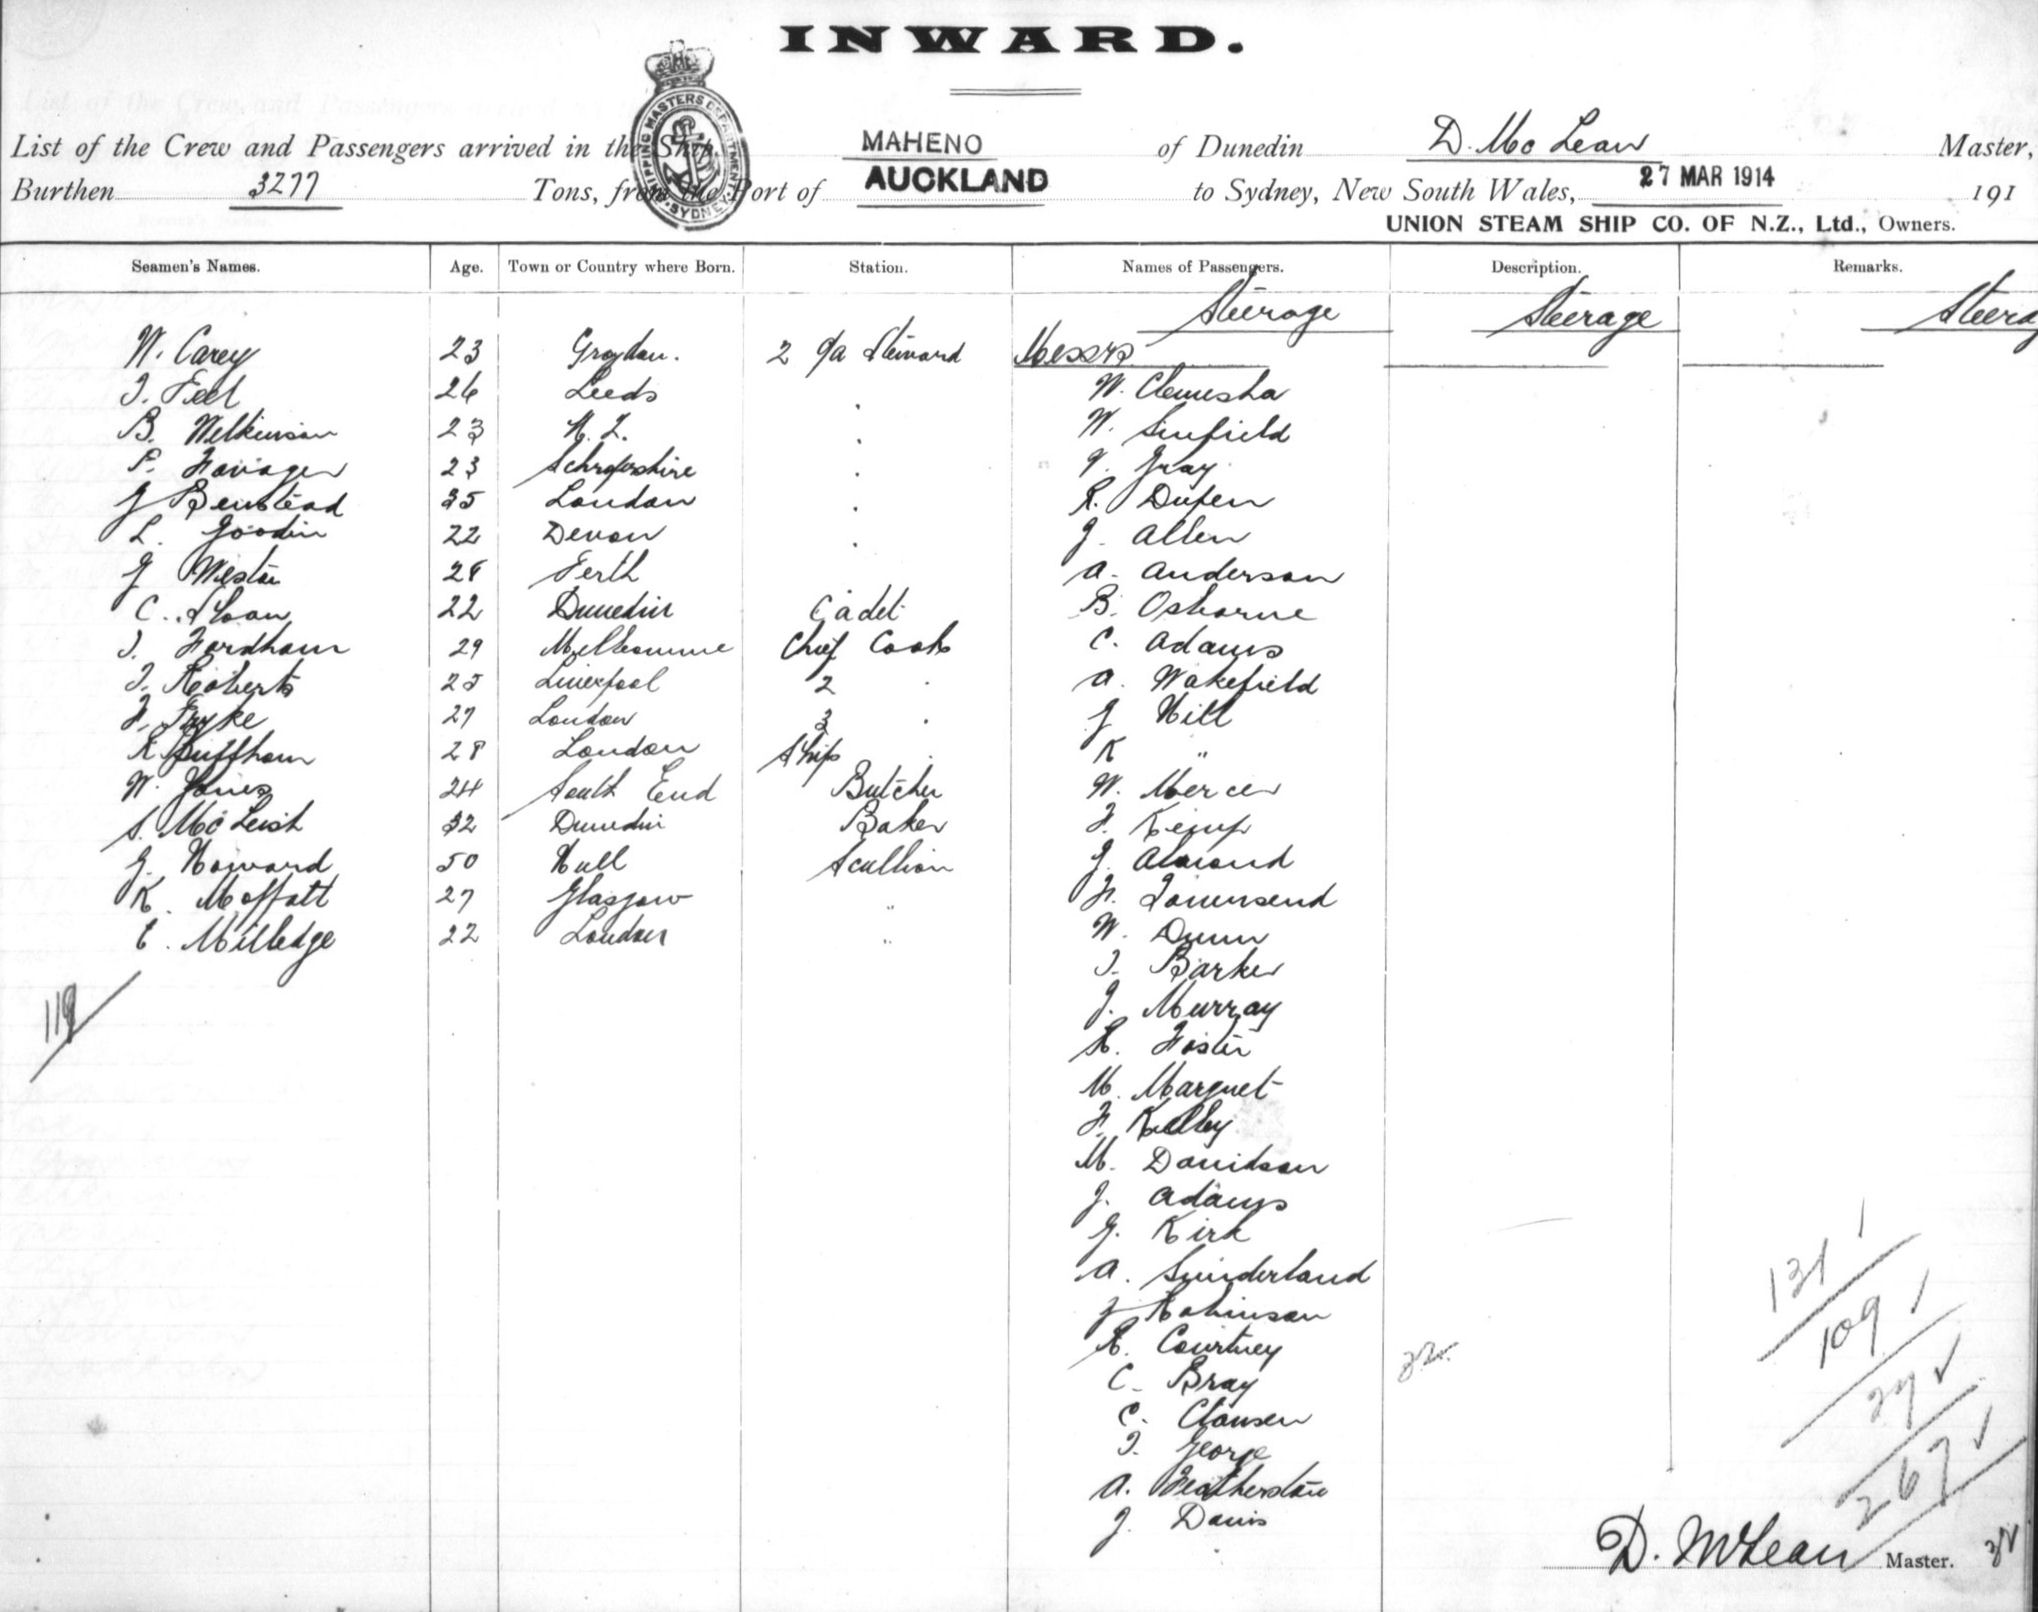 INWARD.
List of the Crew and Passengers arrived in the Ship MAHENO of Dunedin D. McLean Master,
Burthen 3277 Tons, from the Port of AUCKLAND to Sydney, New South Wales, 27 MAR 1914 191
SHIPPING MASTERS DEPARTMENT SYDNEY
UNION STEAM SHIP CO. OF N.Z., Ltd., Owners.
Seamen's Names. Age. Town or Country where Born. Station. Names of Passengers. Description. Remarks.
Steerage Steerage Steera
W. Carey 23 Croydon. 2 Steward Messrs
26 Leeds W. Clemesha
B. Wilkinson 23 N. Z. W. Sinfield
P. Favager 23 Schropshire Gray
J Benstead 35 London R. Dufen
L. Goodin 22 Devon J. Allen
J Weston 28 Perth A. Anderson
C. Sloan 22 Dunedin Cadet B. Osborne
J. Fordham 29 Melbourne Chief Cook C. Adams
J. Roberts 25 Liverpool 2 " A. Wakefield
F. Fryke 27 London 3 " J Hill
R. Huffham 28 London Ships " K "
W. Jones 24 South End Butcher W. Mercer
S. McLeish 32 Dunedin Baker F. Kemp
J. Howard 50 Hull Scullion J. Almond
K. Moffatt 27 Glasgow " H. Townsend
E. Milledge 22 London " W. Dunn
J. Barker
119
J. Murray
R. Foster
M. Marquet
F. Kelley
M. Davidson
J. Adams
G. Kirk
A. Sunderland
J Robinson
R. Courtney 32
C. Bray
C. Clausen
J. George
A. Featherston
J. Davis
131
109
27
267
D. McLean Master. 32